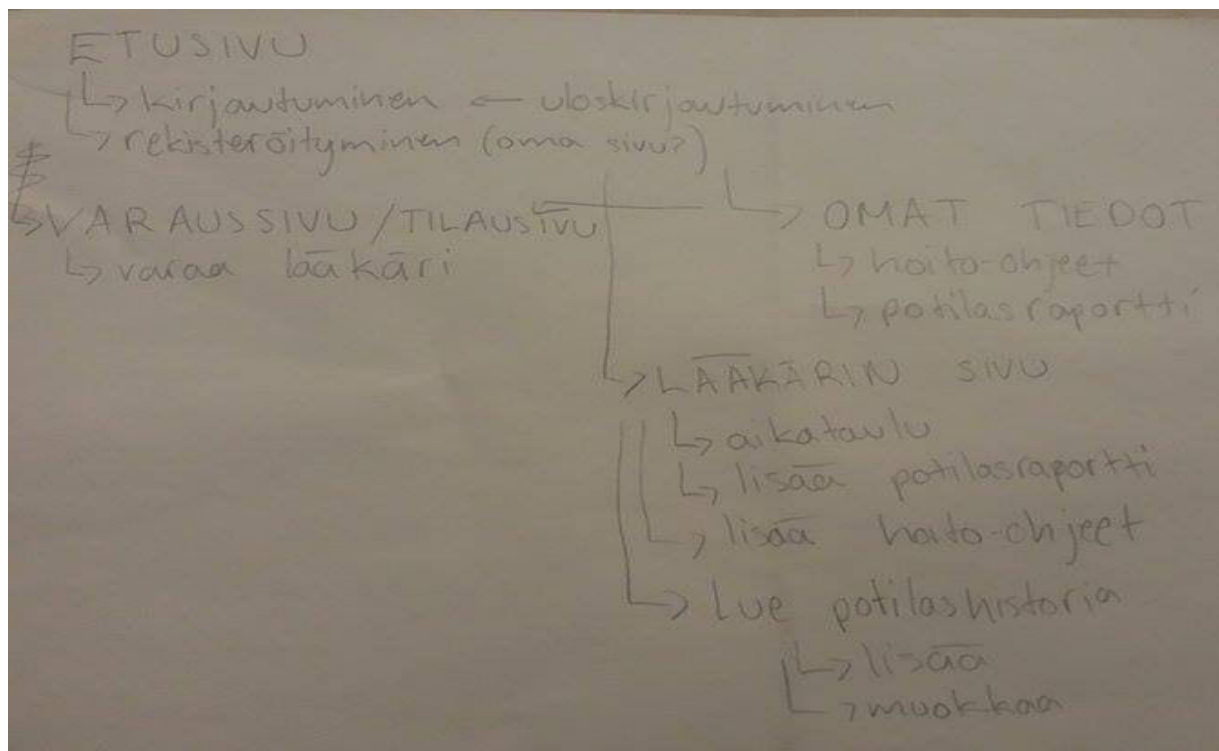 ETUSIVU
↳ kirjautuminen ← uloskirjautuminen
↳ rekisteröityminen (oma sivu?)
↳ VARAUSSIVU / TILAUSIVU
↳ varaa lääkäri
↳ OMAT TIEDOT
↳ hoito-ohjeet
↳ potilasraportti
↳ LÄÄKÄRIN SIVU
↳ aikataulu
↳ lisää potilasraportti
↳ lisää hoito-ohjeet
↳ Lue potilashistoria
↳ lisää
↳ muokkaa